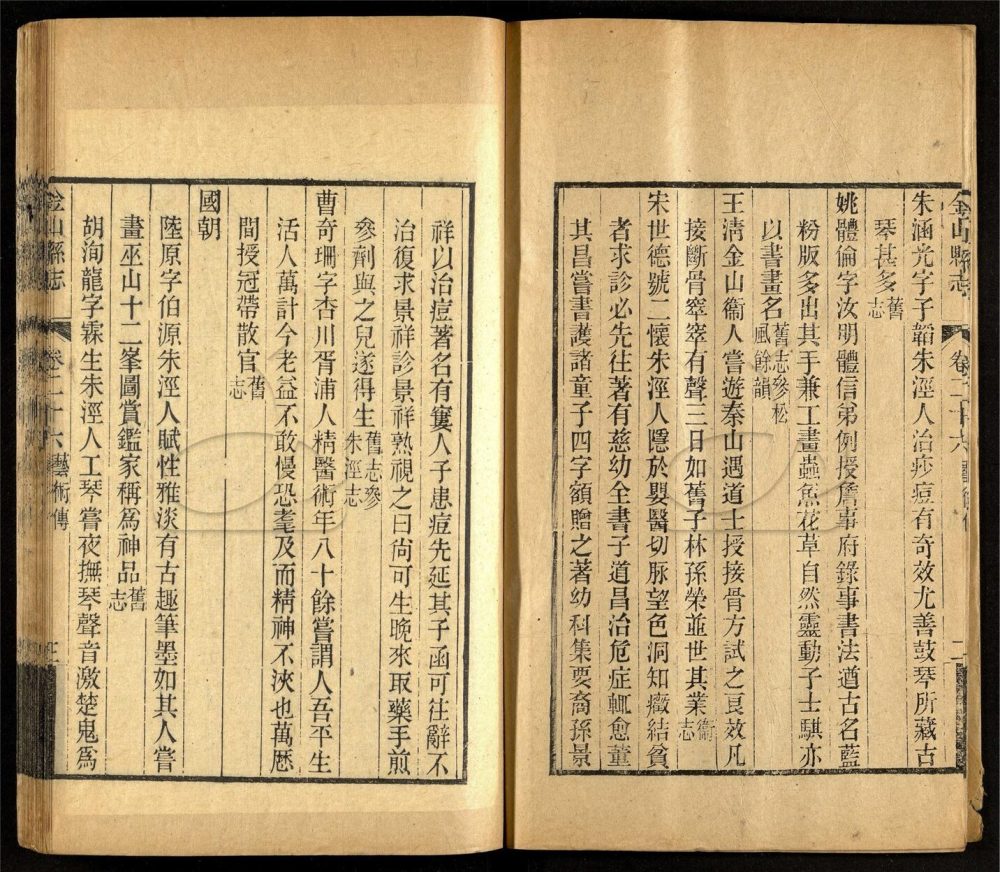 金山縣志 卷二十六 藝術傳 二
朱涵光字子韜朱涇人治痧痘有奇效尤善鼓琴所藏古
琴甚多舊志
姚體倫字汝明體信弟例授詹事府錄事書法遒古名藍
粉版多出其手兼工畫蟲魚花草自然靈動子士騏亦
以書畫名舊志參松風餘韻
王清金山衞人嘗遊秦山遇道士授接骨方試之良效凡
接斷骨窣窣有聲三日如舊子林孫榮並世其業衞志
宋世德號二懷朱涇人隱於嬰醫切脉望色洞知癥結貧
者求診必先往著有慈幼全書子道昌治危症輒愈董
其昌嘗書護諸童子四字額贈之著幼科集要裔孫景
祥以治痘著名有窶人子患痘先延其子函可往辭不
治復求景祥診景祥熟視之曰尙可生晚來取藥手煎
參劑與之兒遂得生舊志參朱涇志
曹奇珊字杏川胥浦人精醫術年八十餘嘗謂人吾平生
活人萬計今老益不敢慢恐耄及而精神不浹也萬厯
間授冠帶散官舊志
國朝
陸原字伯源朱涇人賦性雅淡有古趣筆墨如其人嘗
畫巫山十二峯圖賞鑑家稱爲神品舊志
胡洵龍字霖生朱涇人工琴嘗夜撫琴聲音激楚鬼爲
金山縣志 卷二十六 藝術傳